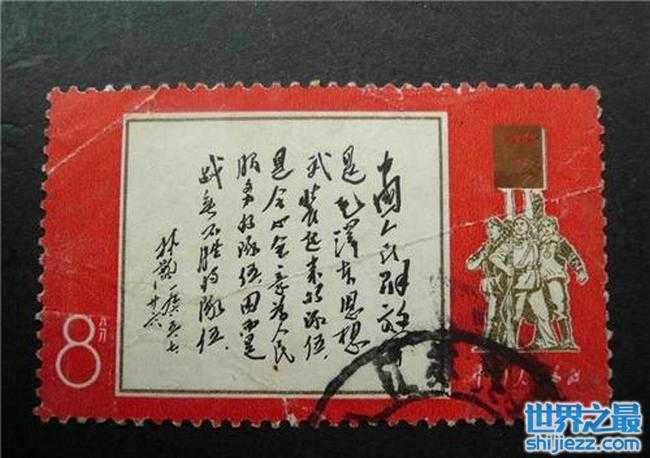 中國人民解放军
是毛澤东思想
武裝起来的隊伍,
是全心全意为人民
服务的隊伍因而是
战无不胜的隊伍.
林彪 一九六五七
廿六
8
八分
中国人民邮政
江苏
世界之最
shijiezz.com